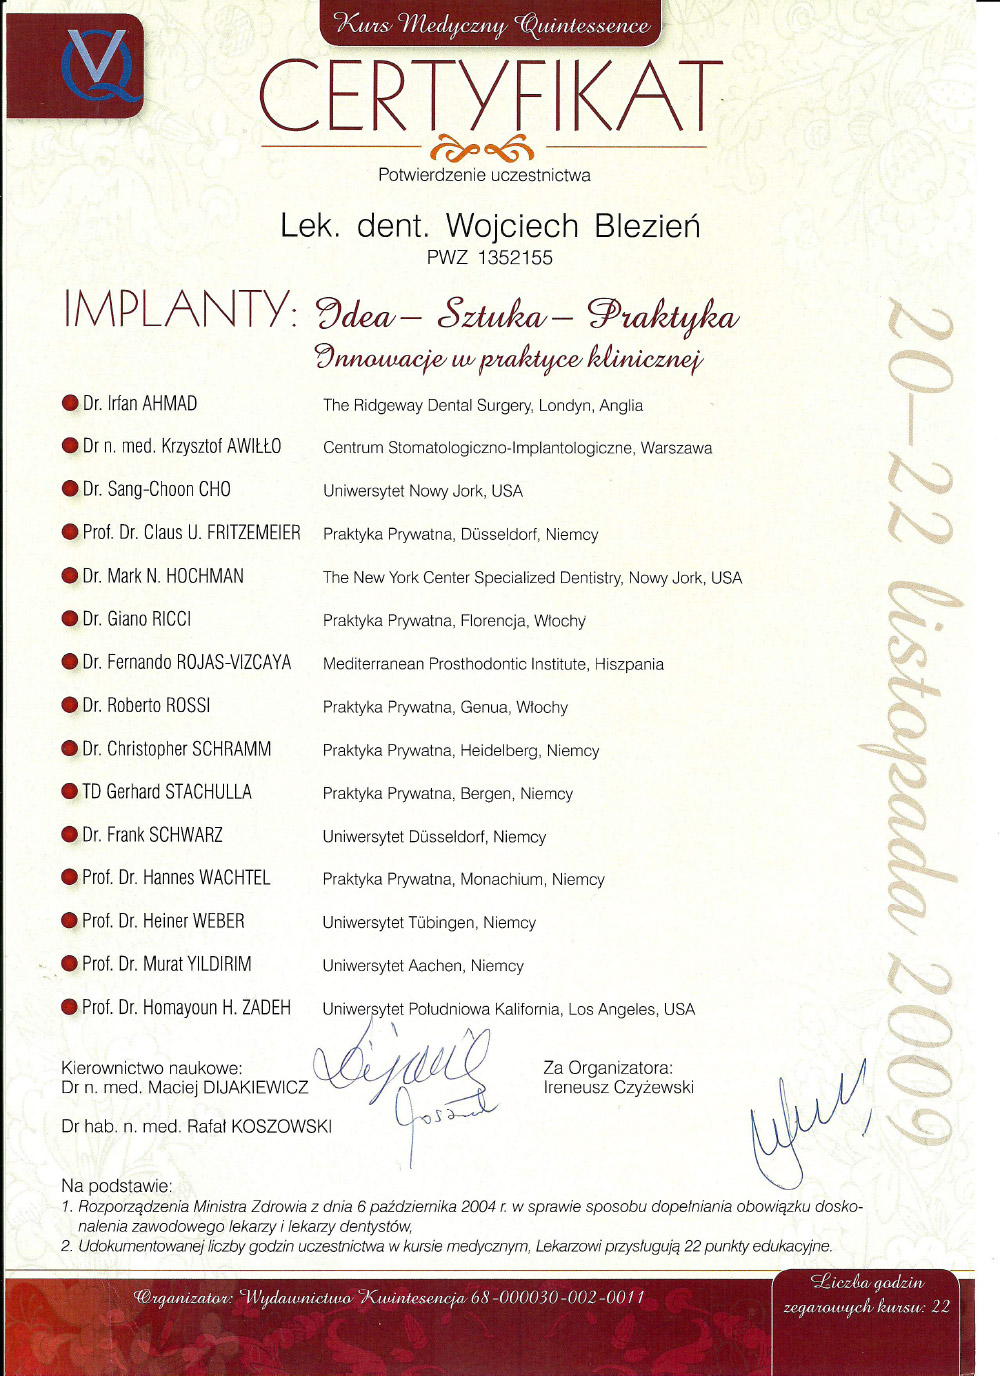 Kurs Medyczny Quintessence
VQ
CERTYFIKAT
Potwierdzenie uczestnictwa
Lek. dent. Wojciech Blezień
PWZ 1352155
IMPLANTY: Idea – Sztuka – Praktyka
Innowacje w praktyce klinicznej
Dr. Irfan AHMAD The Ridgeway Dental Surgery, Londyn, Anglia
Dr n. med. Krzysztof AWIŁŁO Centrum Stomatologiczno-Implantologiczne, Warszawa
Dr. Sang-Choon CHO Uniwersytet Nowy Jork, USA
Prof. Dr. Claus U. FRITZEMEIER Praktyka Prywatna, Düsseldorf, Niemcy
Dr. Mark N. HOCHMAN The New York Center Specialized Dentistry, Nowy Jork, USA
Dr. Giano RICCI Praktyka Prywatna, Florencja, Włochy
Dr. Fernando ROJAS-VIZCAYA Mediterranean Prosthodontic Institute, Hiszpania
Dr. Roberto ROSSI Praktyka Prywatna, Genua, Włochy
Dr. Christopher SCHRAMM Praktyka Prywatna, Heidelberg, Niemcy
TD Gerhard STACHULLA Praktyka Prywatna, Bergen, Niemcy
Dr. Frank SCHWARZ Uniwersytet Düsseldorf, Niemcy
Prof. Dr. Hannes WACHTEL Praktyka Prywatna, Monachium, Niemcy
Prof. Dr. Heiner WEBER Uniwersytet Tübingen, Niemcy
Prof. Dr. Murat YILDIRIM Uniwersytet Aachen, Niemcy
Prof. Dr. Homayoun H. ZADEH Uniwersytet Południowa Kalifornia, Los Angeles, USA
20–22 listopada 2009
Kierownictwo naukowe:
Dr n. med. Maciej DIJAKIEWICZ
Dr hab. n. med. Rafał KOSZOWSKI
Za Organizatora:
Ireneusz Czyżewski
Na podstawie:
1. Rozporządzenia Ministra Zdrowia z dnia 6 października 2004 r. w sprawie sposobu dopełniania obowiązku dosko-
nalenia zawodowego lekarzy i lekarzy dentystów,
2. Udokumentowanej liczby godzin uczestnictwa w kursie medycznym, Lekarzowi przysługują 22 punkty edukacyjne.
Organizator: Wydawnictwo Kwintesencja 68-000030-002-0011
Liczba godzin
zegarowych kursu: 22